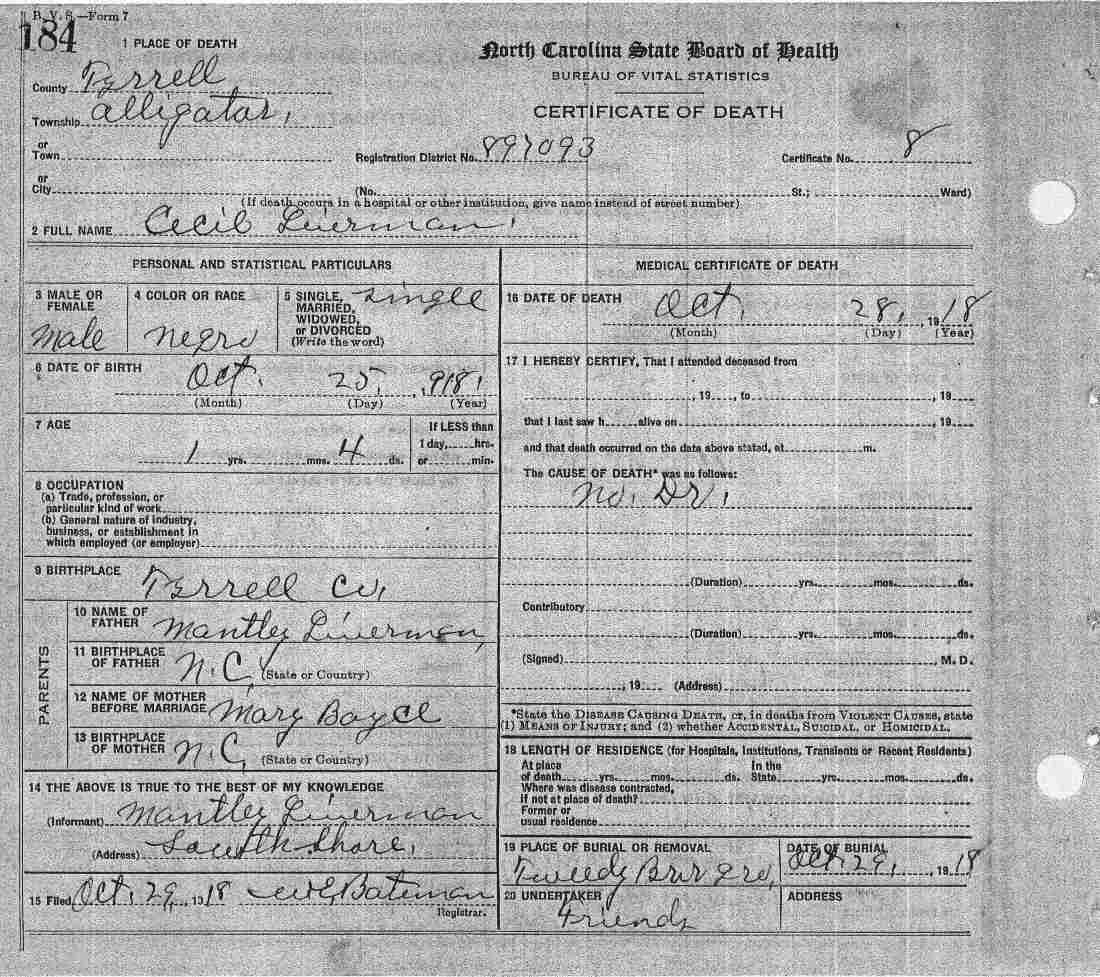 B. V. S.—Form 7
184
1 PLACE OF DEATH
County Tyrrell
Township Alligator,
or
Town
or
City
North Carolina State Board of Health
BUREAU OF VITAL STATISTICS
CERTIFICATE OF DEATH
Registration District No. 897093 Certificate No. 8
(No. St.; Ward)
(If death occurs in a hospital or other institution, give name instead of street number)
2 FULL NAME Cecil Liverman,
PERSONAL AND STATISTICAL PARTICULARS
3 MALE OR FEMALE male
4 COLOR OR RACE negro
5 SINGLE, MARRIED, WIDOWED, or DIVORCED (Write the word) single
6 DATE OF BIRTH Oct. 25, 918,
(Month) (Day) (Year)
7 AGE
1 yrs. mos. 4 ds.
If LESS than
1 day, hrs.
or min.
8 OCCUPATION
(a) Trade, profession, or
particular kind of work
(b) General nature of industry,
business, or establishment in
which employed (or employer)
9 BIRTHPLACE Tyrrell Co,
PARENTS
10 NAME OF FATHER Mantley Liverman,
11 BIRTHPLACE OF FATHER N.C, (State or Country)
12 NAME OF MOTHER BEFORE MARRIAGE Mary Boyce
13 BIRTHPLACE OF MOTHER N.C, (State or Country)
14 THE ABOVE IS TRUE TO THE BEST OF MY KNOWLEDGE
(Informant) Mantley Liverman
(Address) South Shore,
15 Filed Oct. 29, 1918 Bateman
Registrar.
MEDICAL CERTIFICATE OF DEATH
16 DATE OF DEATH Oct. 28, 1918
(Month) (Day) (Year)
17 I HEREBY CERTIFY, That I attended deceased from
, 19 , to , 19
that I last saw h alive on , 19
and that death occurred on the date above stated, at m.
The CAUSE OF DEATH* was as follows:
No. Dr,
(Duration) yrs. mos. ds.
Contributory
(Duration) yrs. mos. ds.
(Signed) , M. D.
, 19 (Address)
*State the DISEASE CAUSING DEATH, or, in deaths from VIOLENT CAUSES, state
(1) MEANS OF INJURY; and (2) whether ACCIDENTAL, SUICIDAL, or HOMICIDAL.
18 LENGTH OF RESIDENCE (for Hospitals, Institutions, Transients or Recent Residents)
At place In the
of death yrs. mos. ds. State yrs. mos. ds.
Where was disease contracted,
If not at place of death?
Former or
usual residence
19 PLACE OF BURIAL OR REMOVAL
Tweedy
DATE OF BURIAL
Oct. 29, 1918
20 UNDERTAKER
Friends
ADDRESS